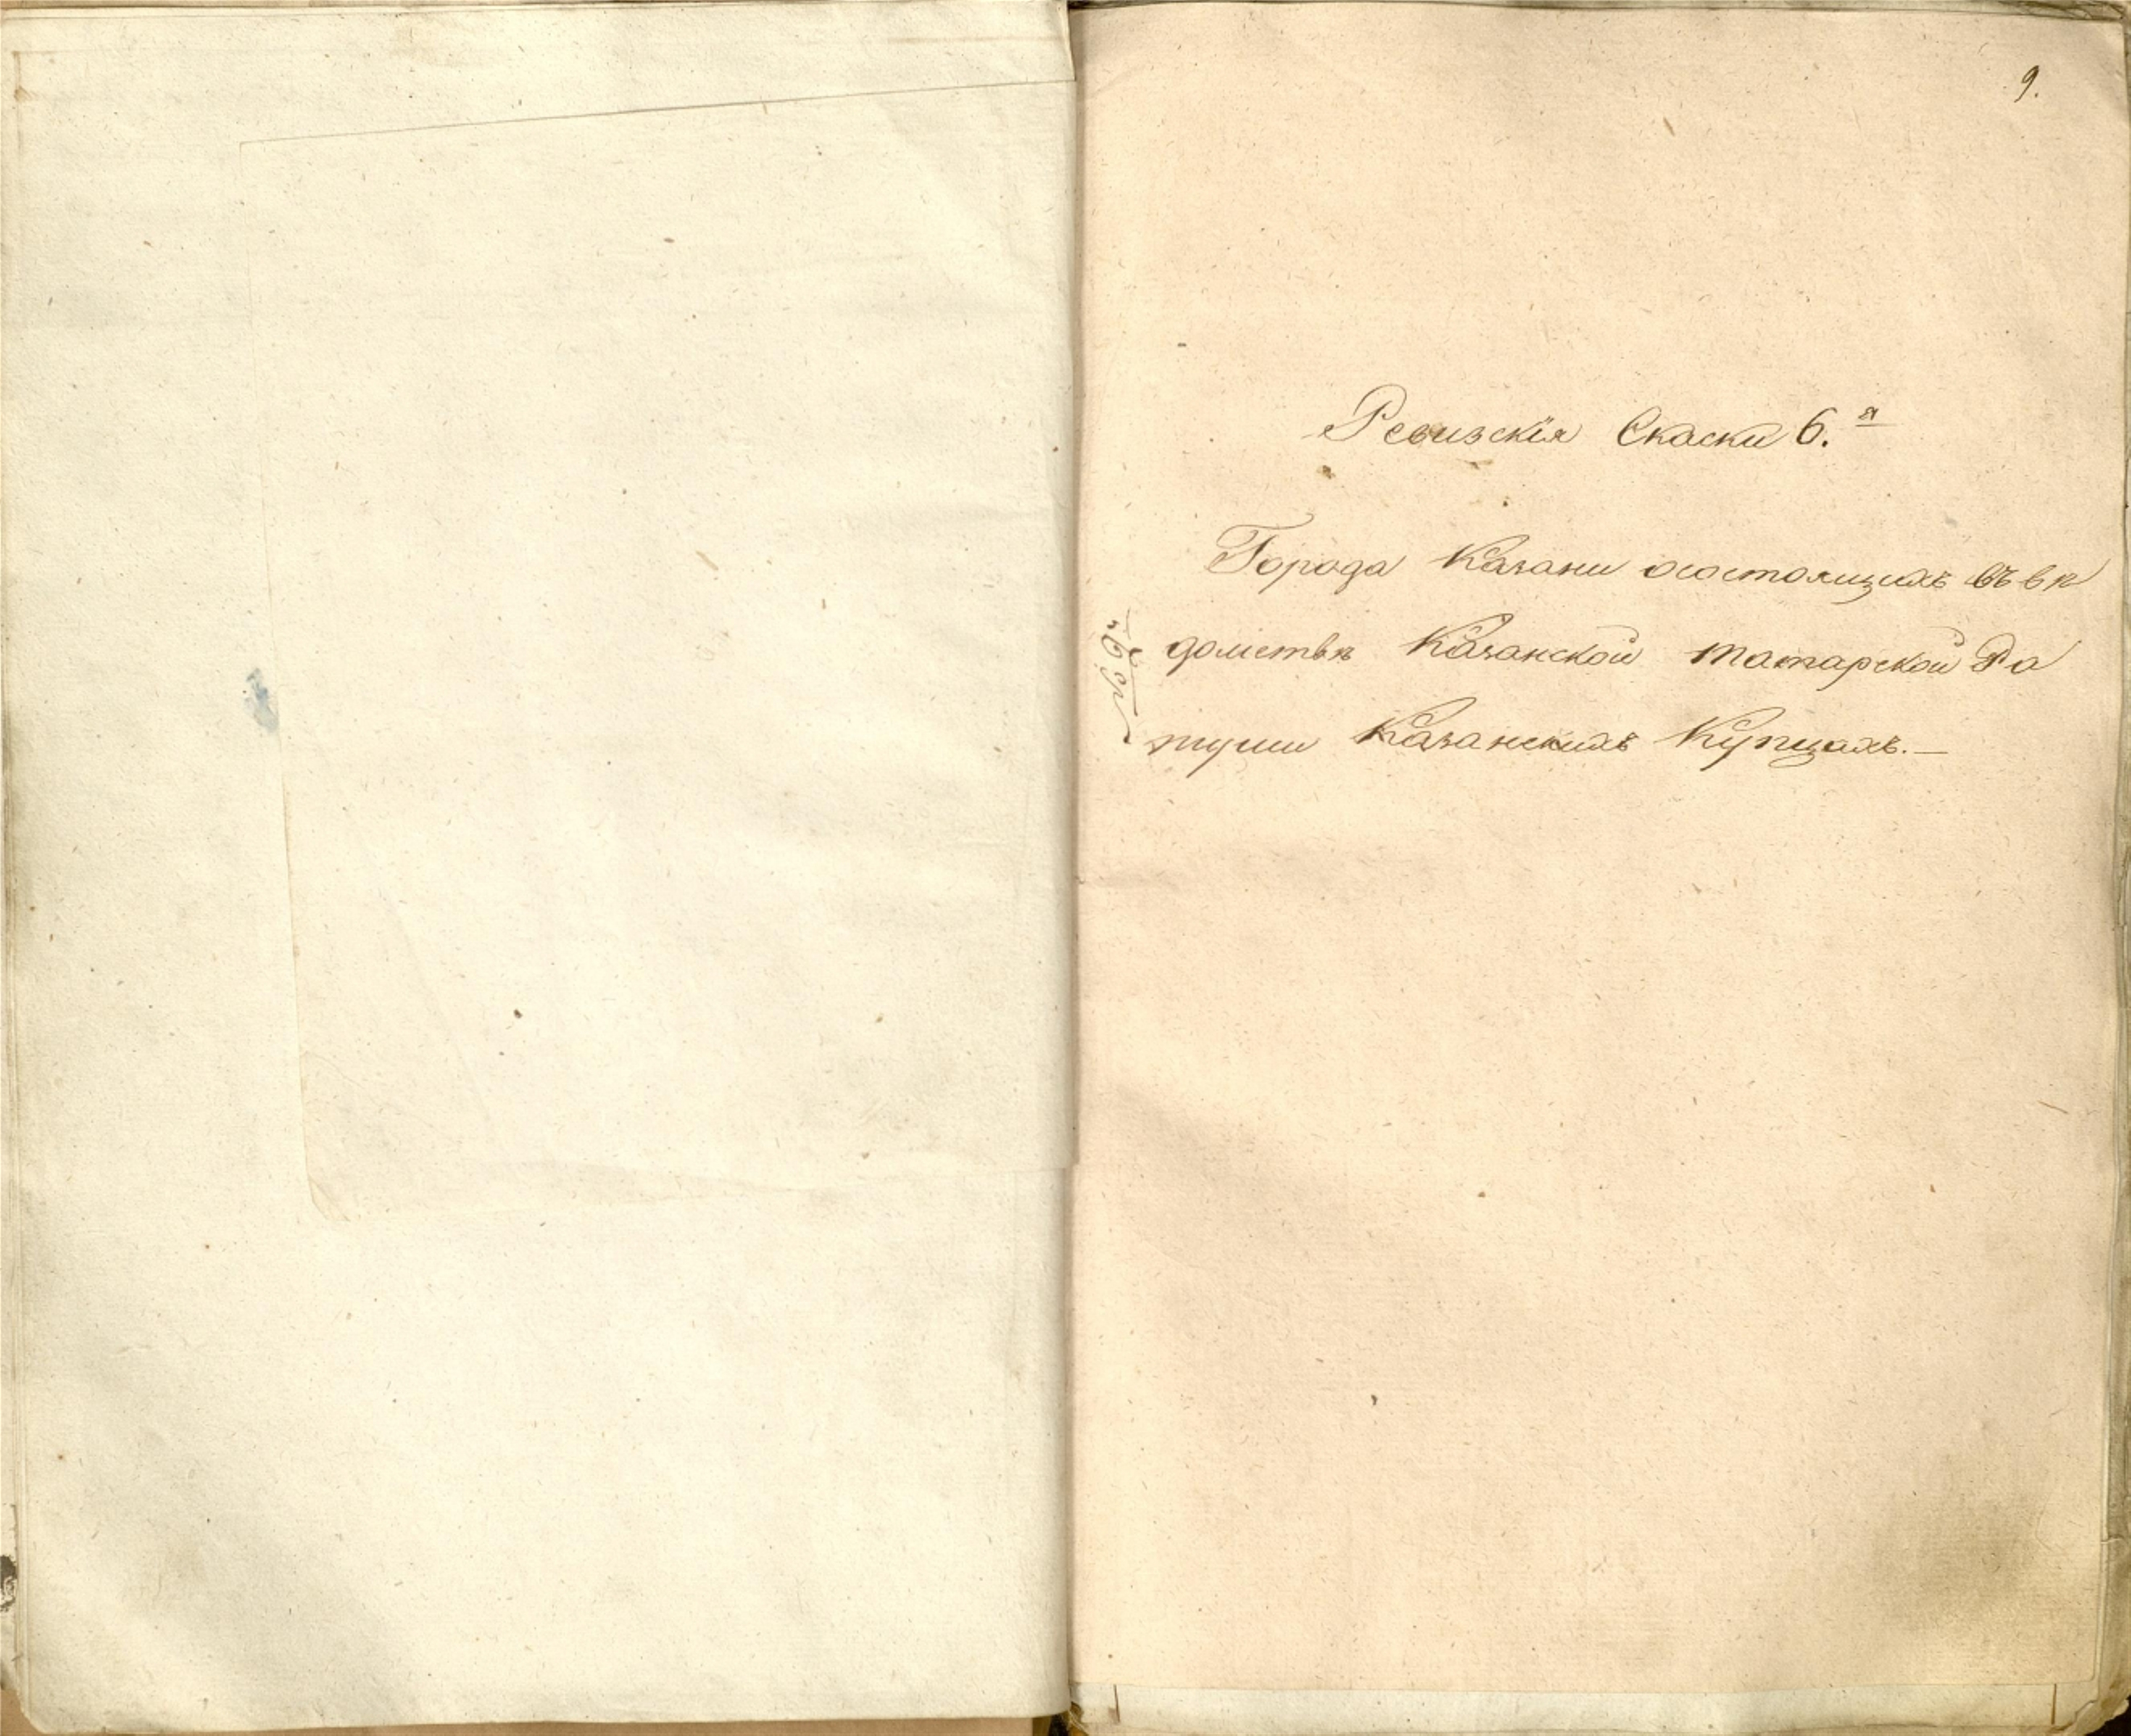 9.
Ревизскія Скаски 6.я
Города Казани осостоящихъ въ вѣ
домствѣ Казанской татарской Ра
туши Казанскихъ Купцахъ.—